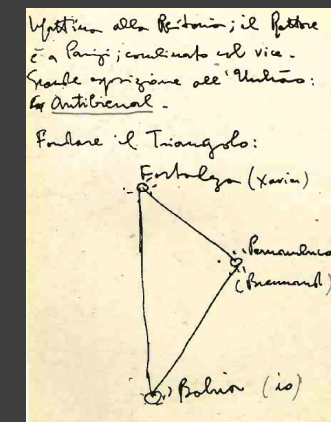 Mattina alla Reitoria; il Rettore
è a Parigi; combinato col vice.
Grande esposizione all'Unhão:
La Antibienal.
Fondare il Triangolo:
Fortaleza (Xavier)
Pernambuco
(Brennand)
Bahia (io)